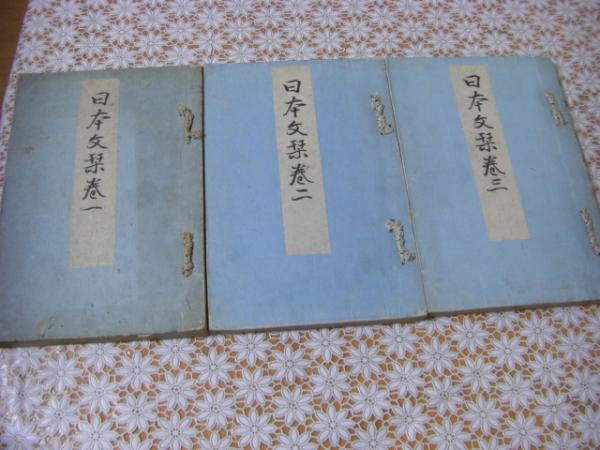 日本文栞巻一
日本文栞巻二
日本文栞巻三